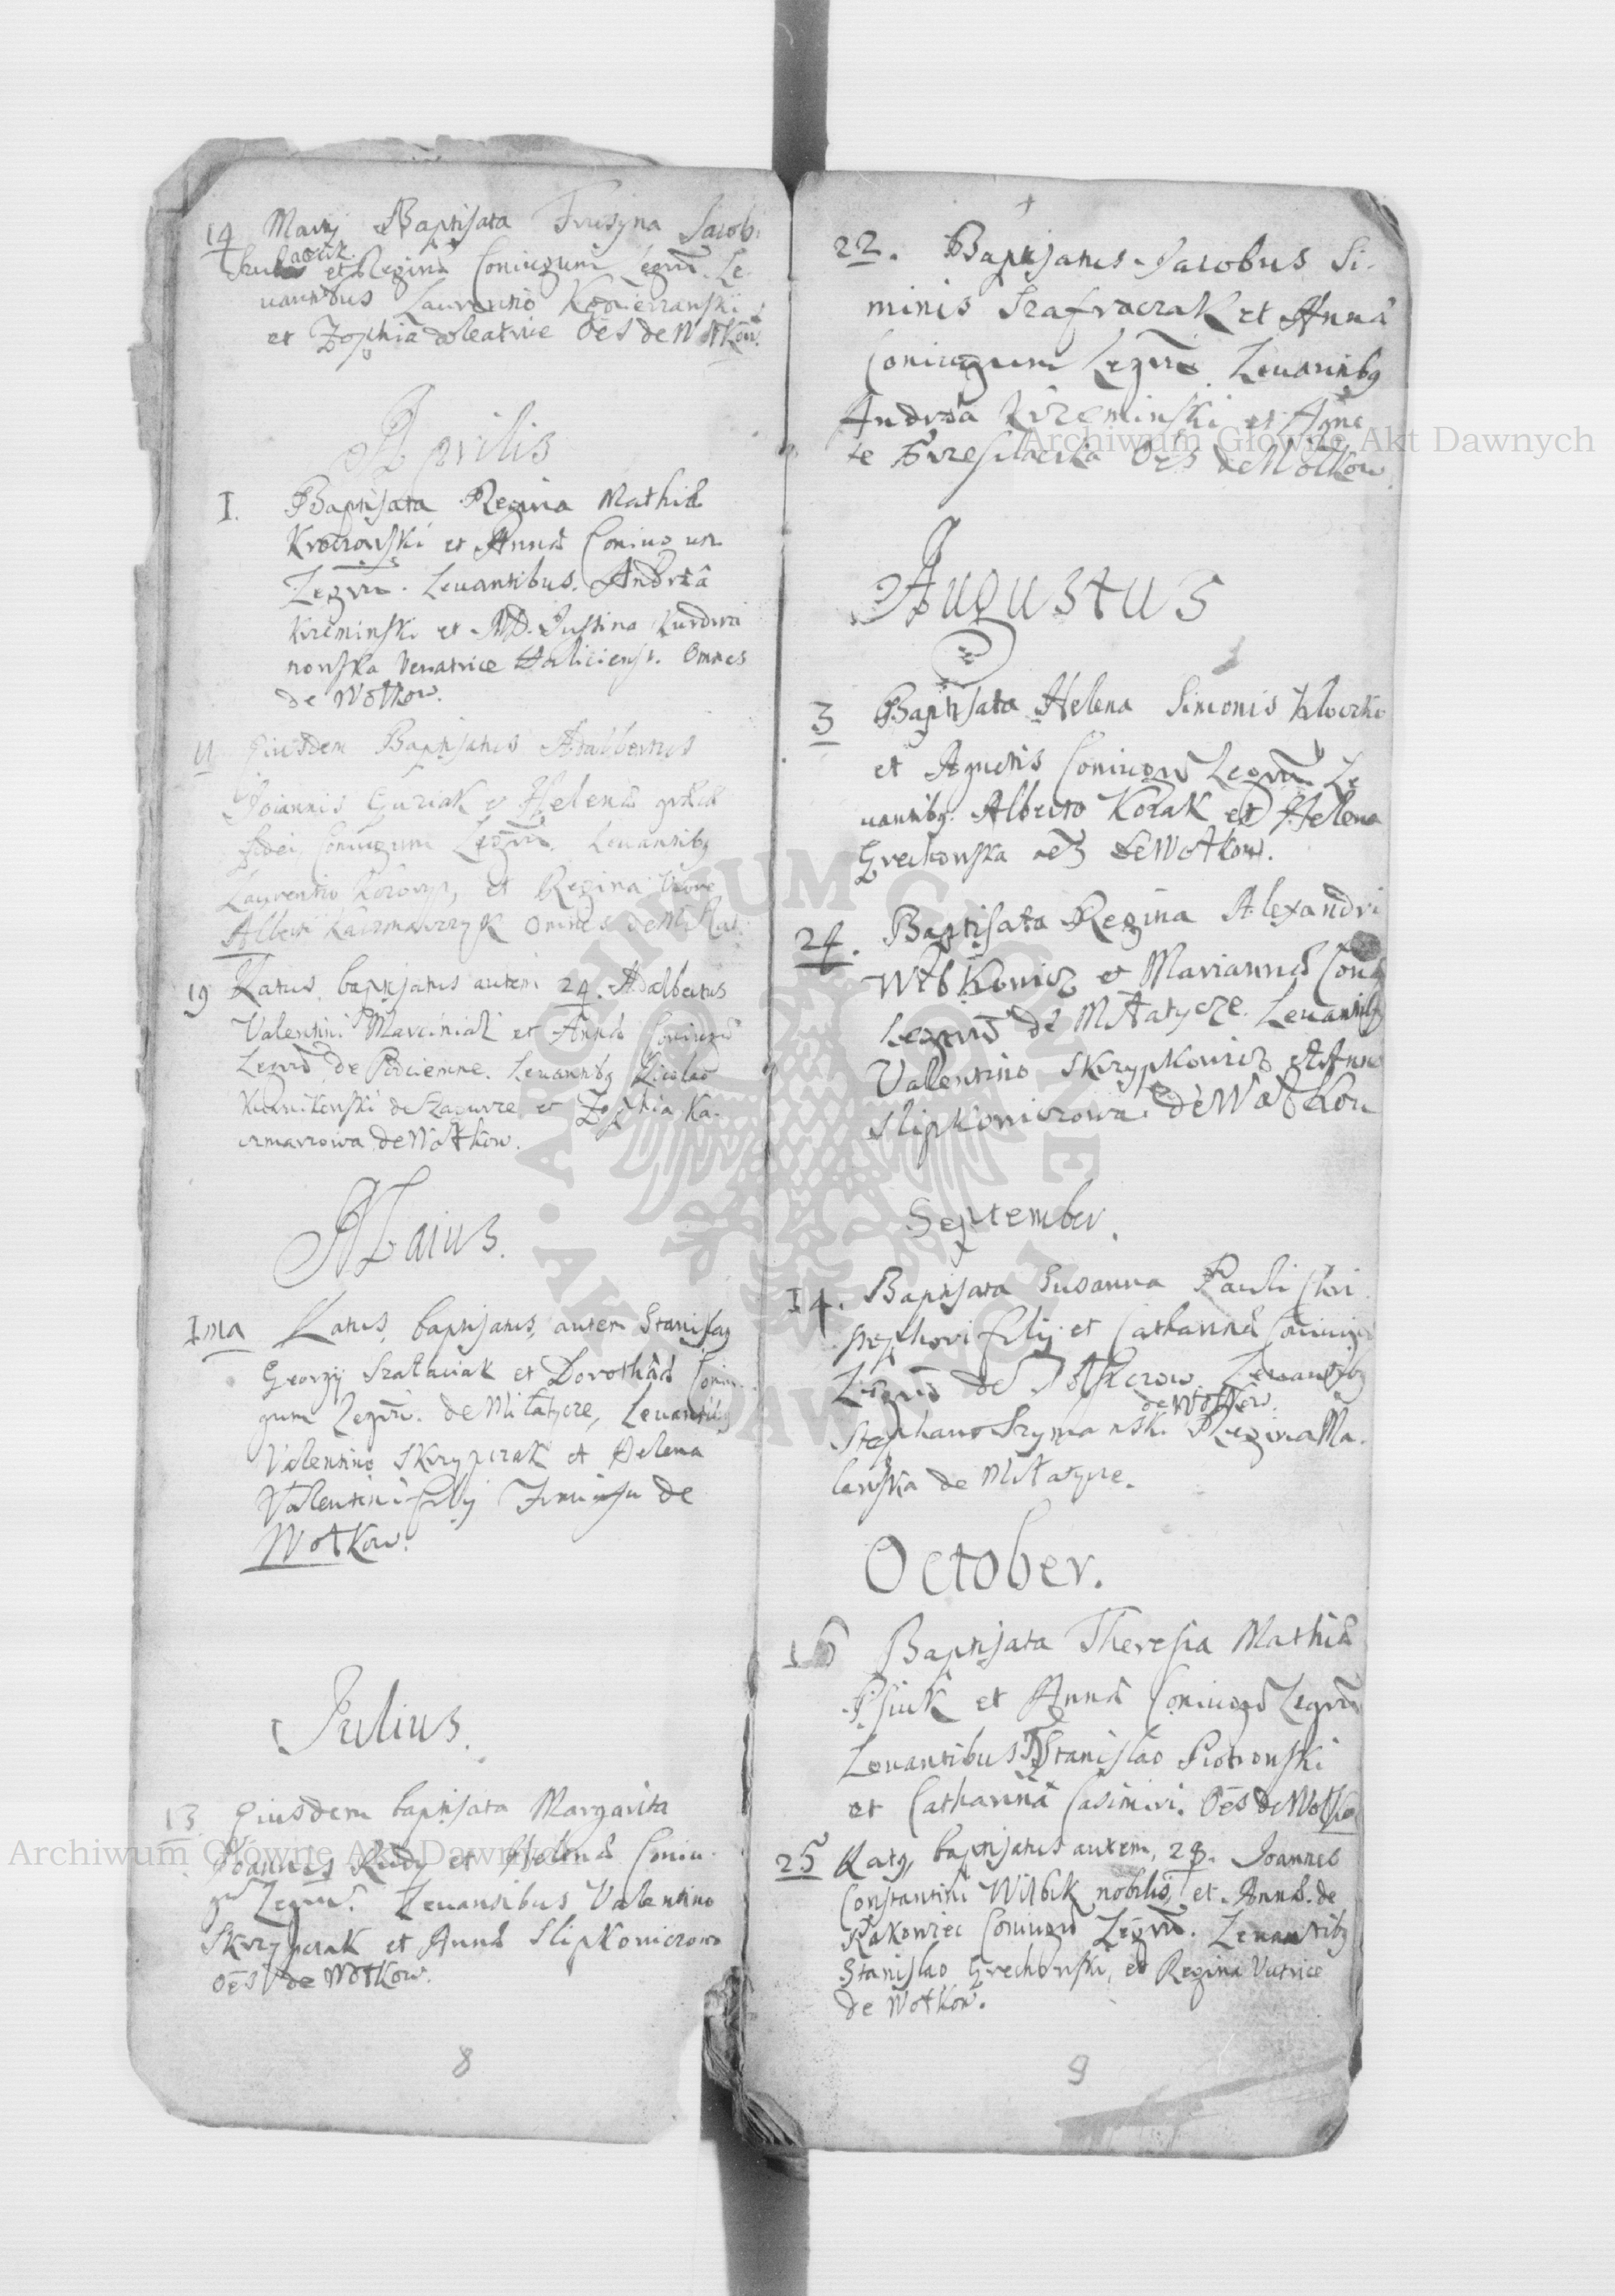 14 Martij Baptisata Frusyna Jacobi
et Reginæ Coniugum Legitm. Le
uantibus Laurentio
et Zophia doleatrice Oēs de Wołkow.
Aprilis
1. Baptisata Regina Mathiæ
Kroczowski et Annæ Coniug
Legtm. Levantibus. Andrea
Krzeminski et MD. Justina Kurdwa
nowska Venatrice Haliciensi. Omnes
de Wołkow.
11 Eiusdem Baptisatus Adalbertus
Joannis Guziak et Helenæ græcæ
fidei, Coniugum Legtm. Levantibq
Laurentio et Regina Uxore
Alberti Kaczmarczyk Omnes de
19 Natus, baptisatus autem 24. Adalbertus
Valentini Marciniak et Annæ Coniugū
Legtm de Podciemne. Levantibq Nicolao
de Zagurze et Zophia Ka-
czmarzowa de Wołkow.
Maius.
1ma Natus, baptisatus, autem Stanislaq
Georgij Szałaciak et Dorotheæ Coniu-
gum Legtm. de Miłatycze, Levantibq
Valentino Skrzypczak et Helena
Valentini filij de
Wołkow.
Julius.
13 Eiusdem baptisata Margarita
Joannis Rudy et Helenæ Coniu-
gū Legtm. Levantibus Valentino
Skrzypczak et Anna Slipkowiczowa
Oēs de Wołkow.
8
22. Baptisatus Jacobus Si-
minis Szafraczak et Annæ
Coniugum Legtm. Levantibq
Andrea Krzeminski et Agne
te Oēs de Wołkow.
Augustus
3 Baptisata Helena Simonis Kloczko
et Agnetis Coniugū Legtm Le
uantibq. Alberto Kozak et Helena
Grechowska oēs de Wołkow.
24. Baptisata Regina Alexandri
et Mariannæ Coniu
Legtm de Młatycze. Levantibq
Valentino Skrzypkowicz et Anna
Slipkowiczowa de Wołkow
September.
14. Baptisata Susanna Pauli Chri
stophori filij et Catharinæ Coniugū
Legtm de Levantibq
de Wołkow.
Stephano Szymansk. Regina Ma-
lawska de Miłatycze.
October.
16 Baptisata Theresia Mathiæ
Psiuk et Annæ Coniugū Legtm
Levantibus Stanislao Piotrowski
et Catharina Casimiri. Oēs de Wołkow
25 Natq, baptisatus autem, 28. Joannes
Constantini Wilbik nobilis, et Annæ. de
Rakowiec Coniugū Legtm. Levantibq
Stanislao Grechowski, et Regina
de Wołkow.
9
Archiwum Główne Akt Dawnych
Archiwum Główne Akt Dawnych
ARCHIWUM GŁÓWNE AKT DAWNYCH